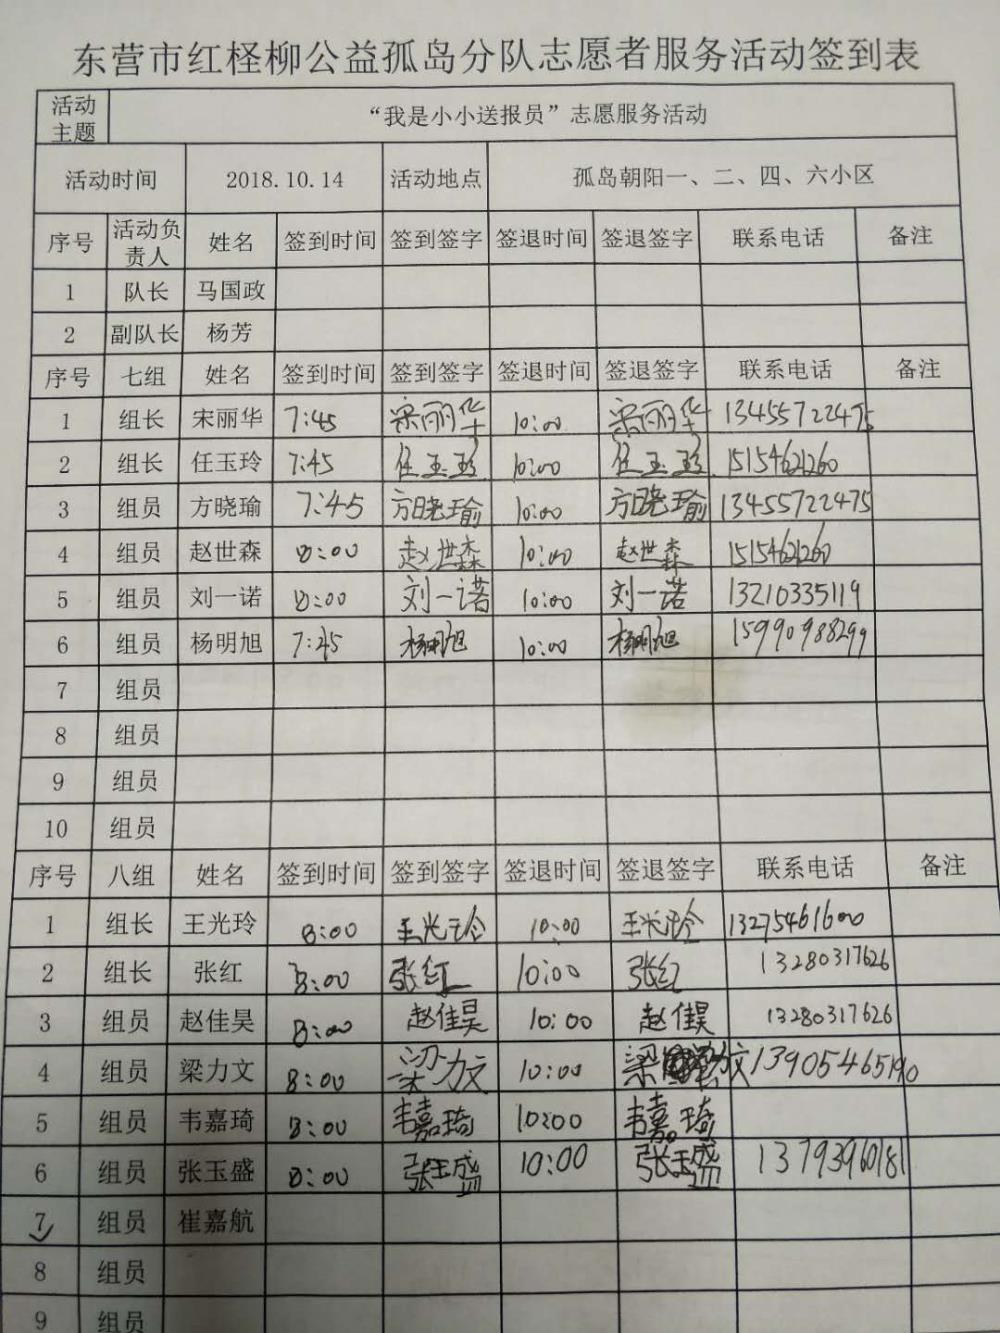 东营市红柽柳公益孤岛分队志愿者服务活动签到表
活动主题 “我是小小送报员”志愿服务活动
活动时间 2018.10.14 活动地点 孤岛朝阳一、二、四、六小区
序号 活动负责人 姓名 签到时间 签到签字 签退时间 签退签字 联系电话 备注
1 队长 马国政
2 副队长 杨芳
序号 七组 姓名 签到时间 签到签字 签退时间 签退签字 联系电话 备注
1 组长 宋丽华 7:45 宋丽华 10:00 宋丽华 13455722475
2 组长 任玉玲 7:45 任玉玲 10:00 任玉玲 15154621260
3 组员 方晓瑜 7:45 方晓瑜 10:00 方晓瑜 13455722475
4 组员 赵世森 8:00 赵世森 10:00 赵世森 15154621260
5 组员 刘一诺 8:00 刘一诺 10:00 刘一诺 13210335119
6 组员 杨明旭 7:45 杨明旭 10:00 杨明旭 15990988299
7 组员
8 组员
9 组员
10 组员
序号 八组 姓名 签到时间 签到签字 签退时间 签退签字 联系电话 备注
1 组长 王光玲 8:00 王光玲 10:00 王光玲 13275461600
2 组长 张红 8:00 张红 10:00 张红 13280317626
3 组员 赵佳昊 8:00 赵佳昊 10:00 赵佳昊 13280317626
4 组员 梁力文 8:00 梁力文 10:00 梁力文 13905465190
5 组员 韦嘉琦 8:00 韦嘉琦 10:00 韦嘉琦
6 组员 张玉盛 8:00 张玉盛 10:00 张玉盛 13793960181
7 组员 崔嘉航
8 组员
9 组员